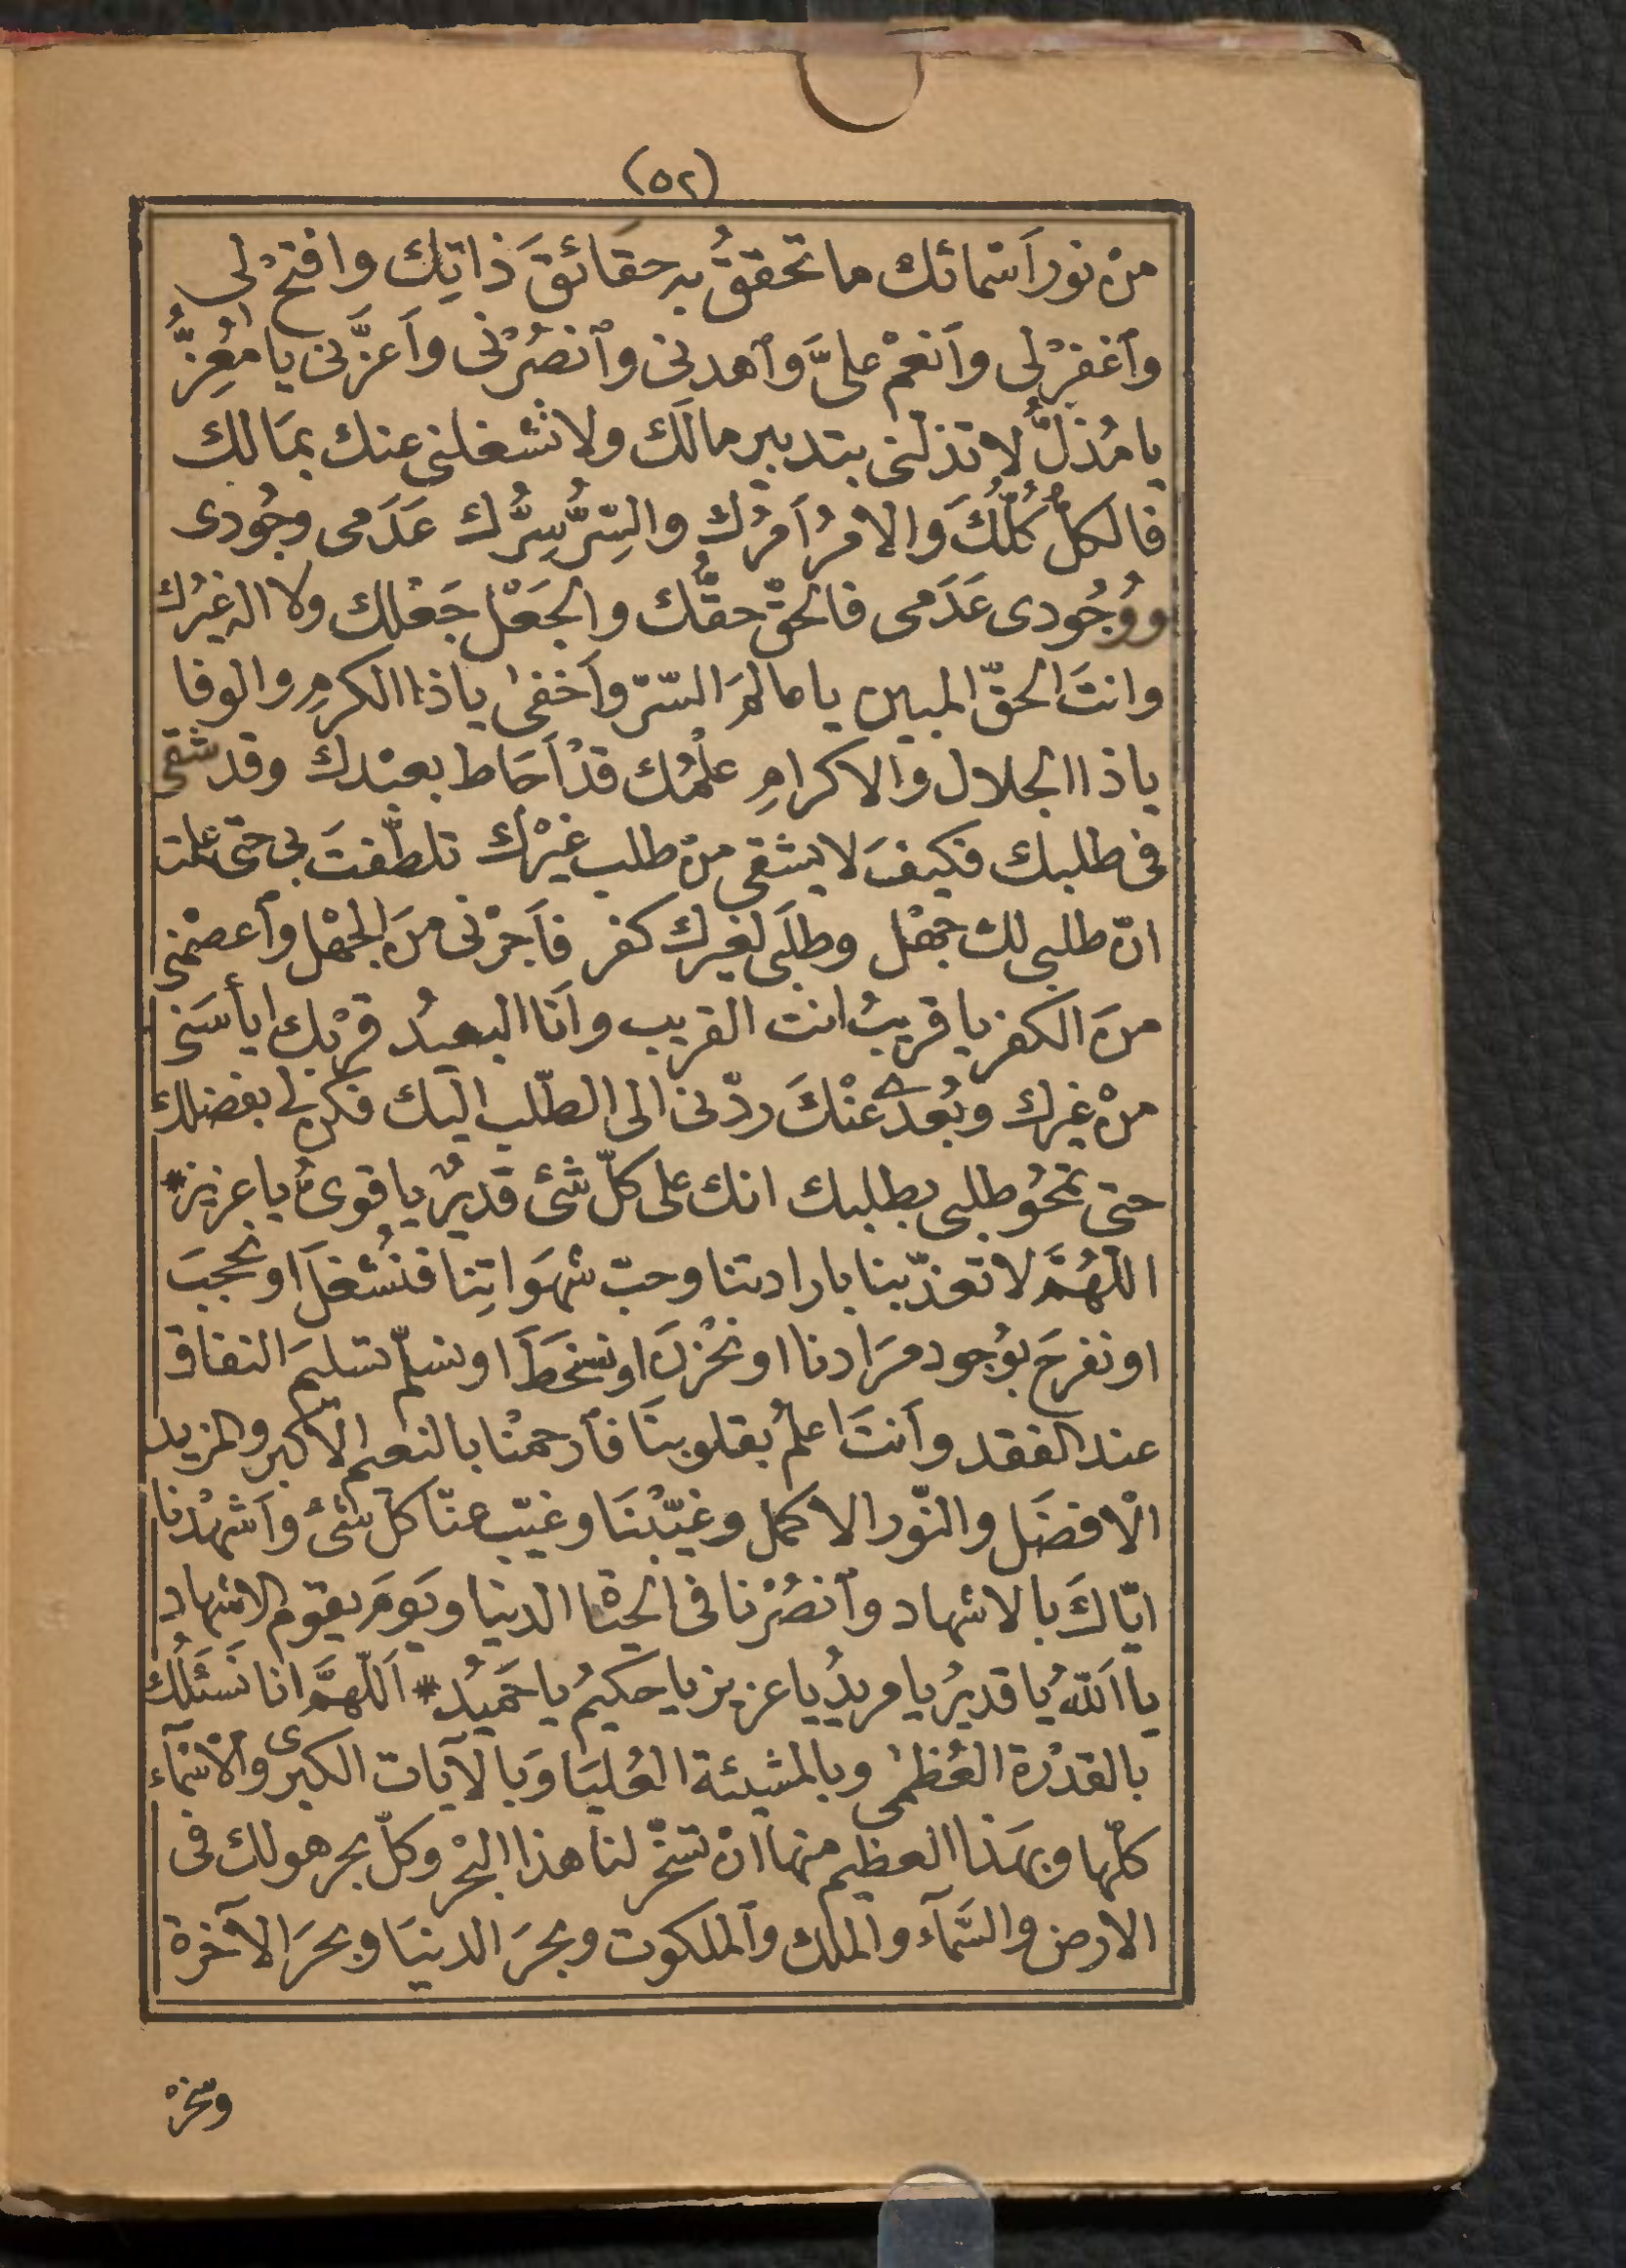 (٥٢)
منْ نور اَسْمائك ما تحققُ به حقَائقَ ذاتِك وافتحْ لى
وٱغفرْ لى واَنعمْ علىَّ وٱهدنى وٱنصُرْنى واَعزَّنى يا مُعِزُّ
يا مُذلُّ لا تذلّنى بتدبير مالَك ولا تشغلنى عنك بمَالك
فالكلُّ كُلُّكَ والامْرُ اَمرُك والسِّرُّ سِرُّك عَدَمى وجُودى
ووُجُودى عَدَمى فالحقّ حقُّك والجَعْل جَعْلك ولا اله غيْرُك
وانتَ الحقّ المبين يا عالمَ السّرّ واَخفىٰ ياذا الكرمِ والوفا
ياذا الجلال والاكرامِ علْمُك قدْ اَحَاط بعبْدك وقد شقى
فى طلبك فكيفَ لا يشقى منْ طلب غيْرك تلطّفتَ بى حتى علمت
انّ طلبى لك جهْل وطلَبى لغيرك كفر فاَجرْنى منَ الجهْل وٱعصمْنى
منَ الكفر يا قريبُ انت القريب واَنا البعيدُ قرْبك اَيأسَنى
منْ غيرك وبُعدى عنْكَ ردّنى الى الطّلب اليك فكن لى بفضلك
حتى تمحُو طلبى بطلبك انك على كلّ شئ قديرٌ يا قوىُّ يا عزيز*
اللّهُمَّ لا تعذّبنا بارادتنا وحبّ شهَواتِنا فنُشْغلَ او نحجبَ
او نفرحَ بوُجود مرَادنا او نحْزنَ او نسْخطَ او نسلّم تسليمَ النفاق
عند الفقد واَنتَ اعلمُ بقلوبنَا فٱرحمْنا بالنعيم الاَكبر والمزيد
الْافضَل والنّور الاكمل وغيّبْنَا وغيّب عنّا كلّ شئ واَشهدْنا
ايّاكَ بالاشهاد وٱنصُرْنا فى الحيٰوة الدنيا ويَومَ يقوم الاشهاد
يا اَللّٰهُ يا قديرُ يا مريدُ يا عزيز يا حكيمُ يا حَميدُ* اَللّهمَّ انا نَسْئَلُك
بالقدْرة العُظمىٰ وبالمشيئة العُليَا وَبالآيات الكبرى والاَسْمآء
كلّها وبهَذا العظيم منها انْ تسَخّر لنا هذا البحْر وكلّ بحر هو لك فى
الارض والسَّمآء والملك وٱلملكوت وبحرَ الدنيَا وبحرَ الآخرة
وسخّرْ